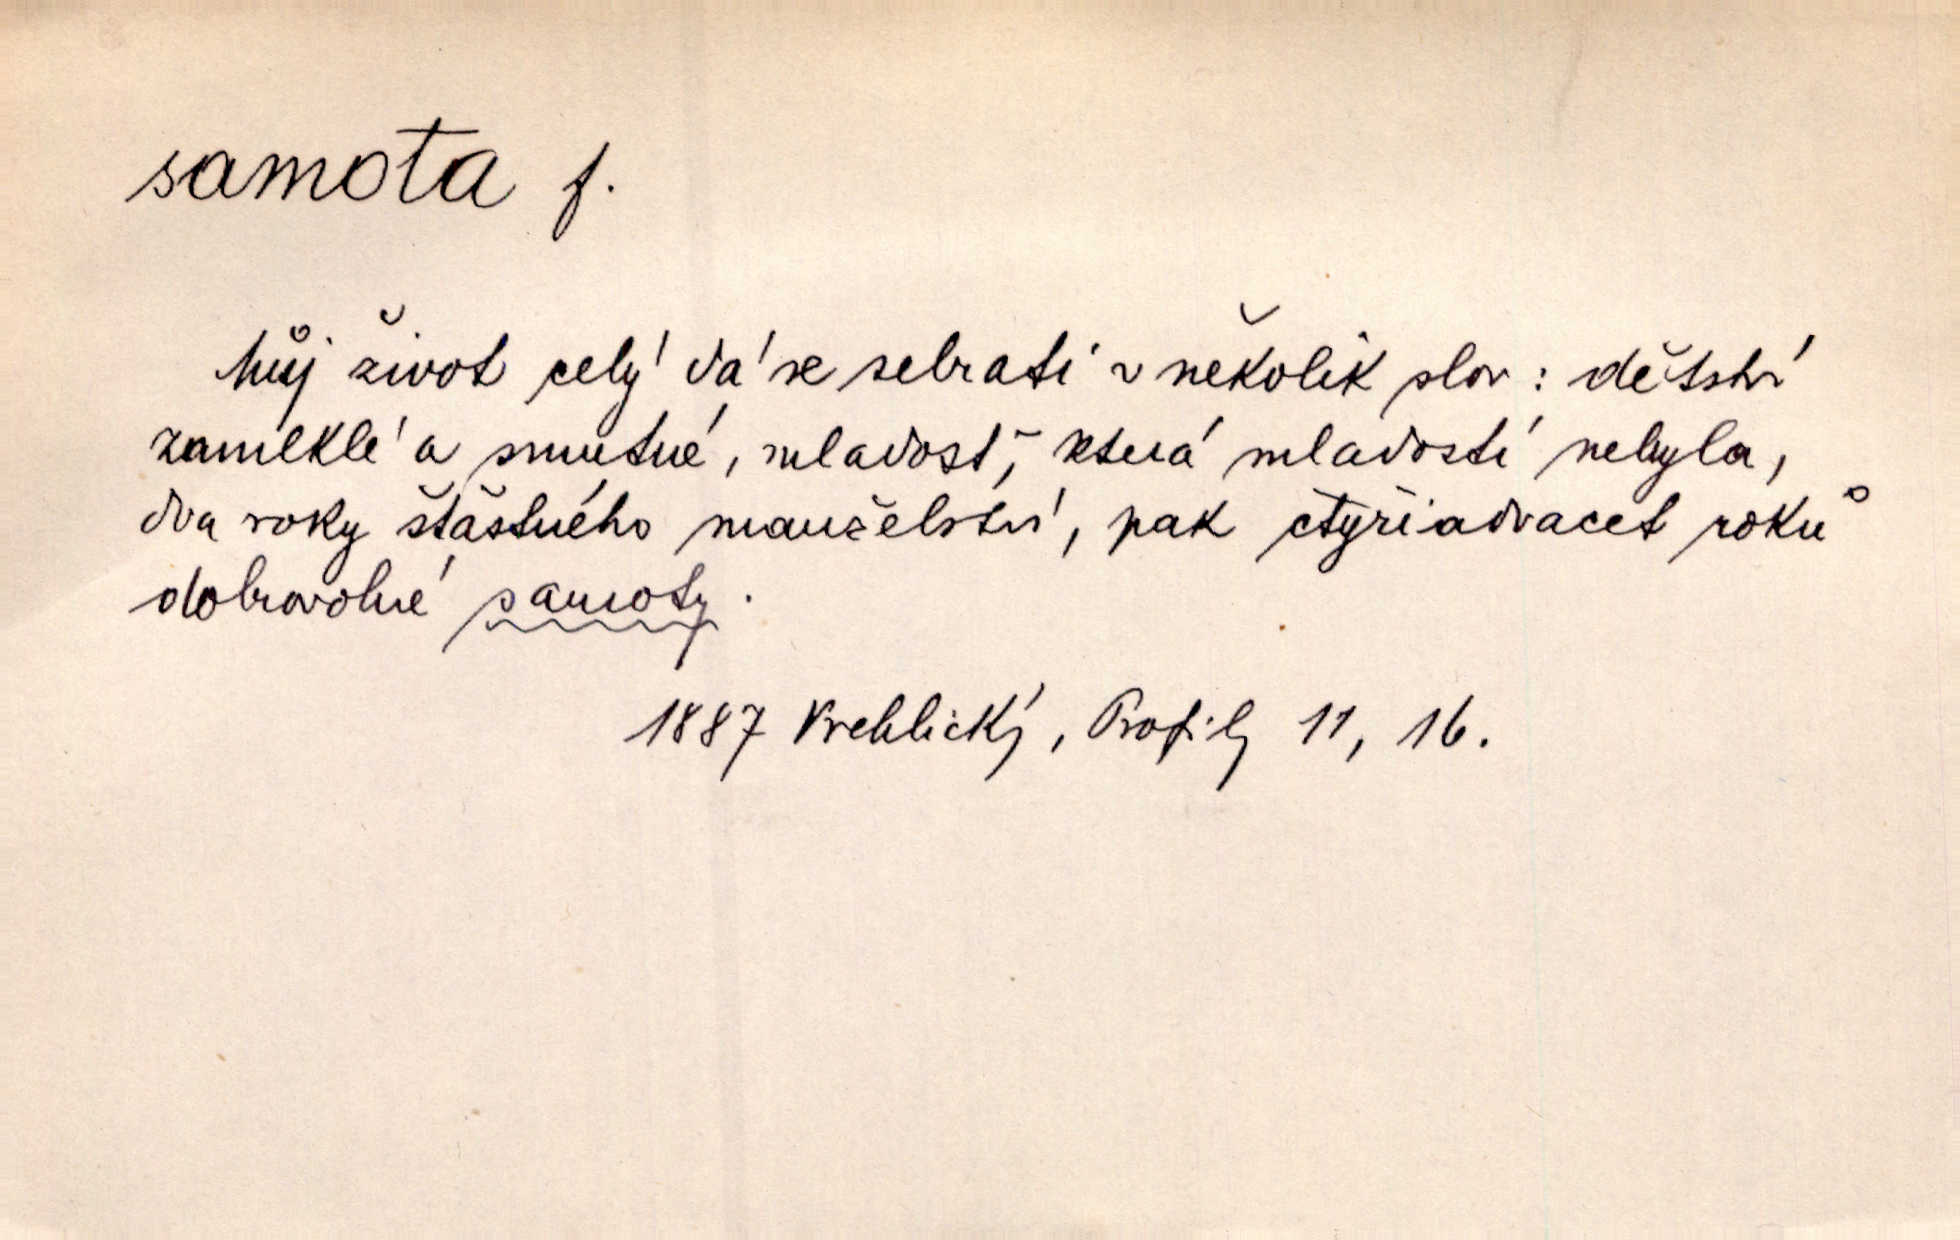 samota f.
Můj život celý dá se sebrati v několik slov: dětství
zamlklé a smutné, mladosť, která mladostí nebyla,
dva roky šťastného manželství, pak čtyřiadvacet roků
dobrovolné samoty.
1887 Vrchlický, Profily 11, 16.